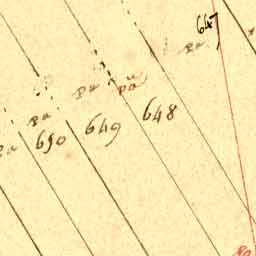 647
Pa
Pa
pa
648
Pa
649
650